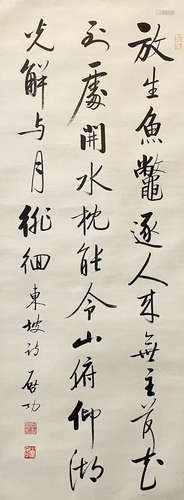 放生魚鼈逐人来無主荷花
到處開水枕能令山俯仰湖
光解与月徘徊 東坡詩 啟功